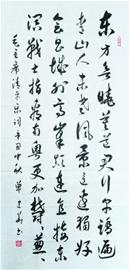 东方欲晓莫道君行早踏遍
青山人未老风景这边独好
会昌城外高峰颠连直接东
溟战士指看南粤更加郁郁葱葱
毛主席清平乐词辛丑中秋单书